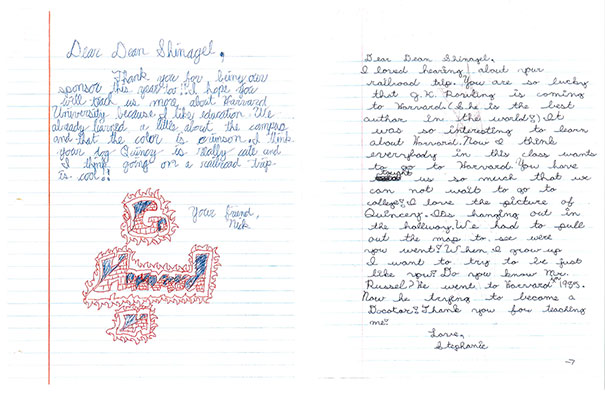 Dear Dean Shinagel,
Thank you for being our
sponsor this year
hope you
will teach us more about Harvard
University because I like education. We
already learned a little about the campus
and that the color is crimson. I think
your dog Quincy is really cute and
I think going on a railroad trip
is cool!!
Your friend,
Nick
Dear Dean Shinagel,
I loved hearing about your
railroad trip. You are so lucky
that J.K. Rowling is coming
to Harvard! She is the best
author in the world! It
was so interesting to learn
about Harvard. Now I think
everybody in this class wants
to go to Harvard. You have
taught us so much that we
can not wait to go to
college! I love the picture of
Quincey. Its hanging out in
the hallway. We had to pull
out the map to see were
you went! When I grow up
I want to try to be just
like you! Do you know Mr.
Russel? He went to Harvard in
Now he trying to become a
Docotor! Thank you for teaching
me!
Love,
Stephanie
→